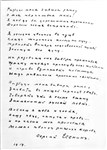 Разбуди меня завтра рано,
О моя терпеливая мать!
Я пойду за дорожным курганом
Дорогого гостя встречать.
Я сегодня увидел в пуще
След широких колес на лугу.
Треплет ветер под облачной кущей
Золотую его дугу.
На рассвете он завтра промчится,
Шапку-месяц пригнув под кустом,
И игриво взмахнет кобылица
Над равниною красным хвостом.
Разбуди меня завтра рано,
Засвети в нашей горнице свет.
Говорят, что я скоро стану
Знаменитый русский поэт.
Воспою я тебя и гостя,
Нашу печь, петуха и кров
И на песни мои прольется
Молоко твоих рыжих коров.
Сергей Есенин